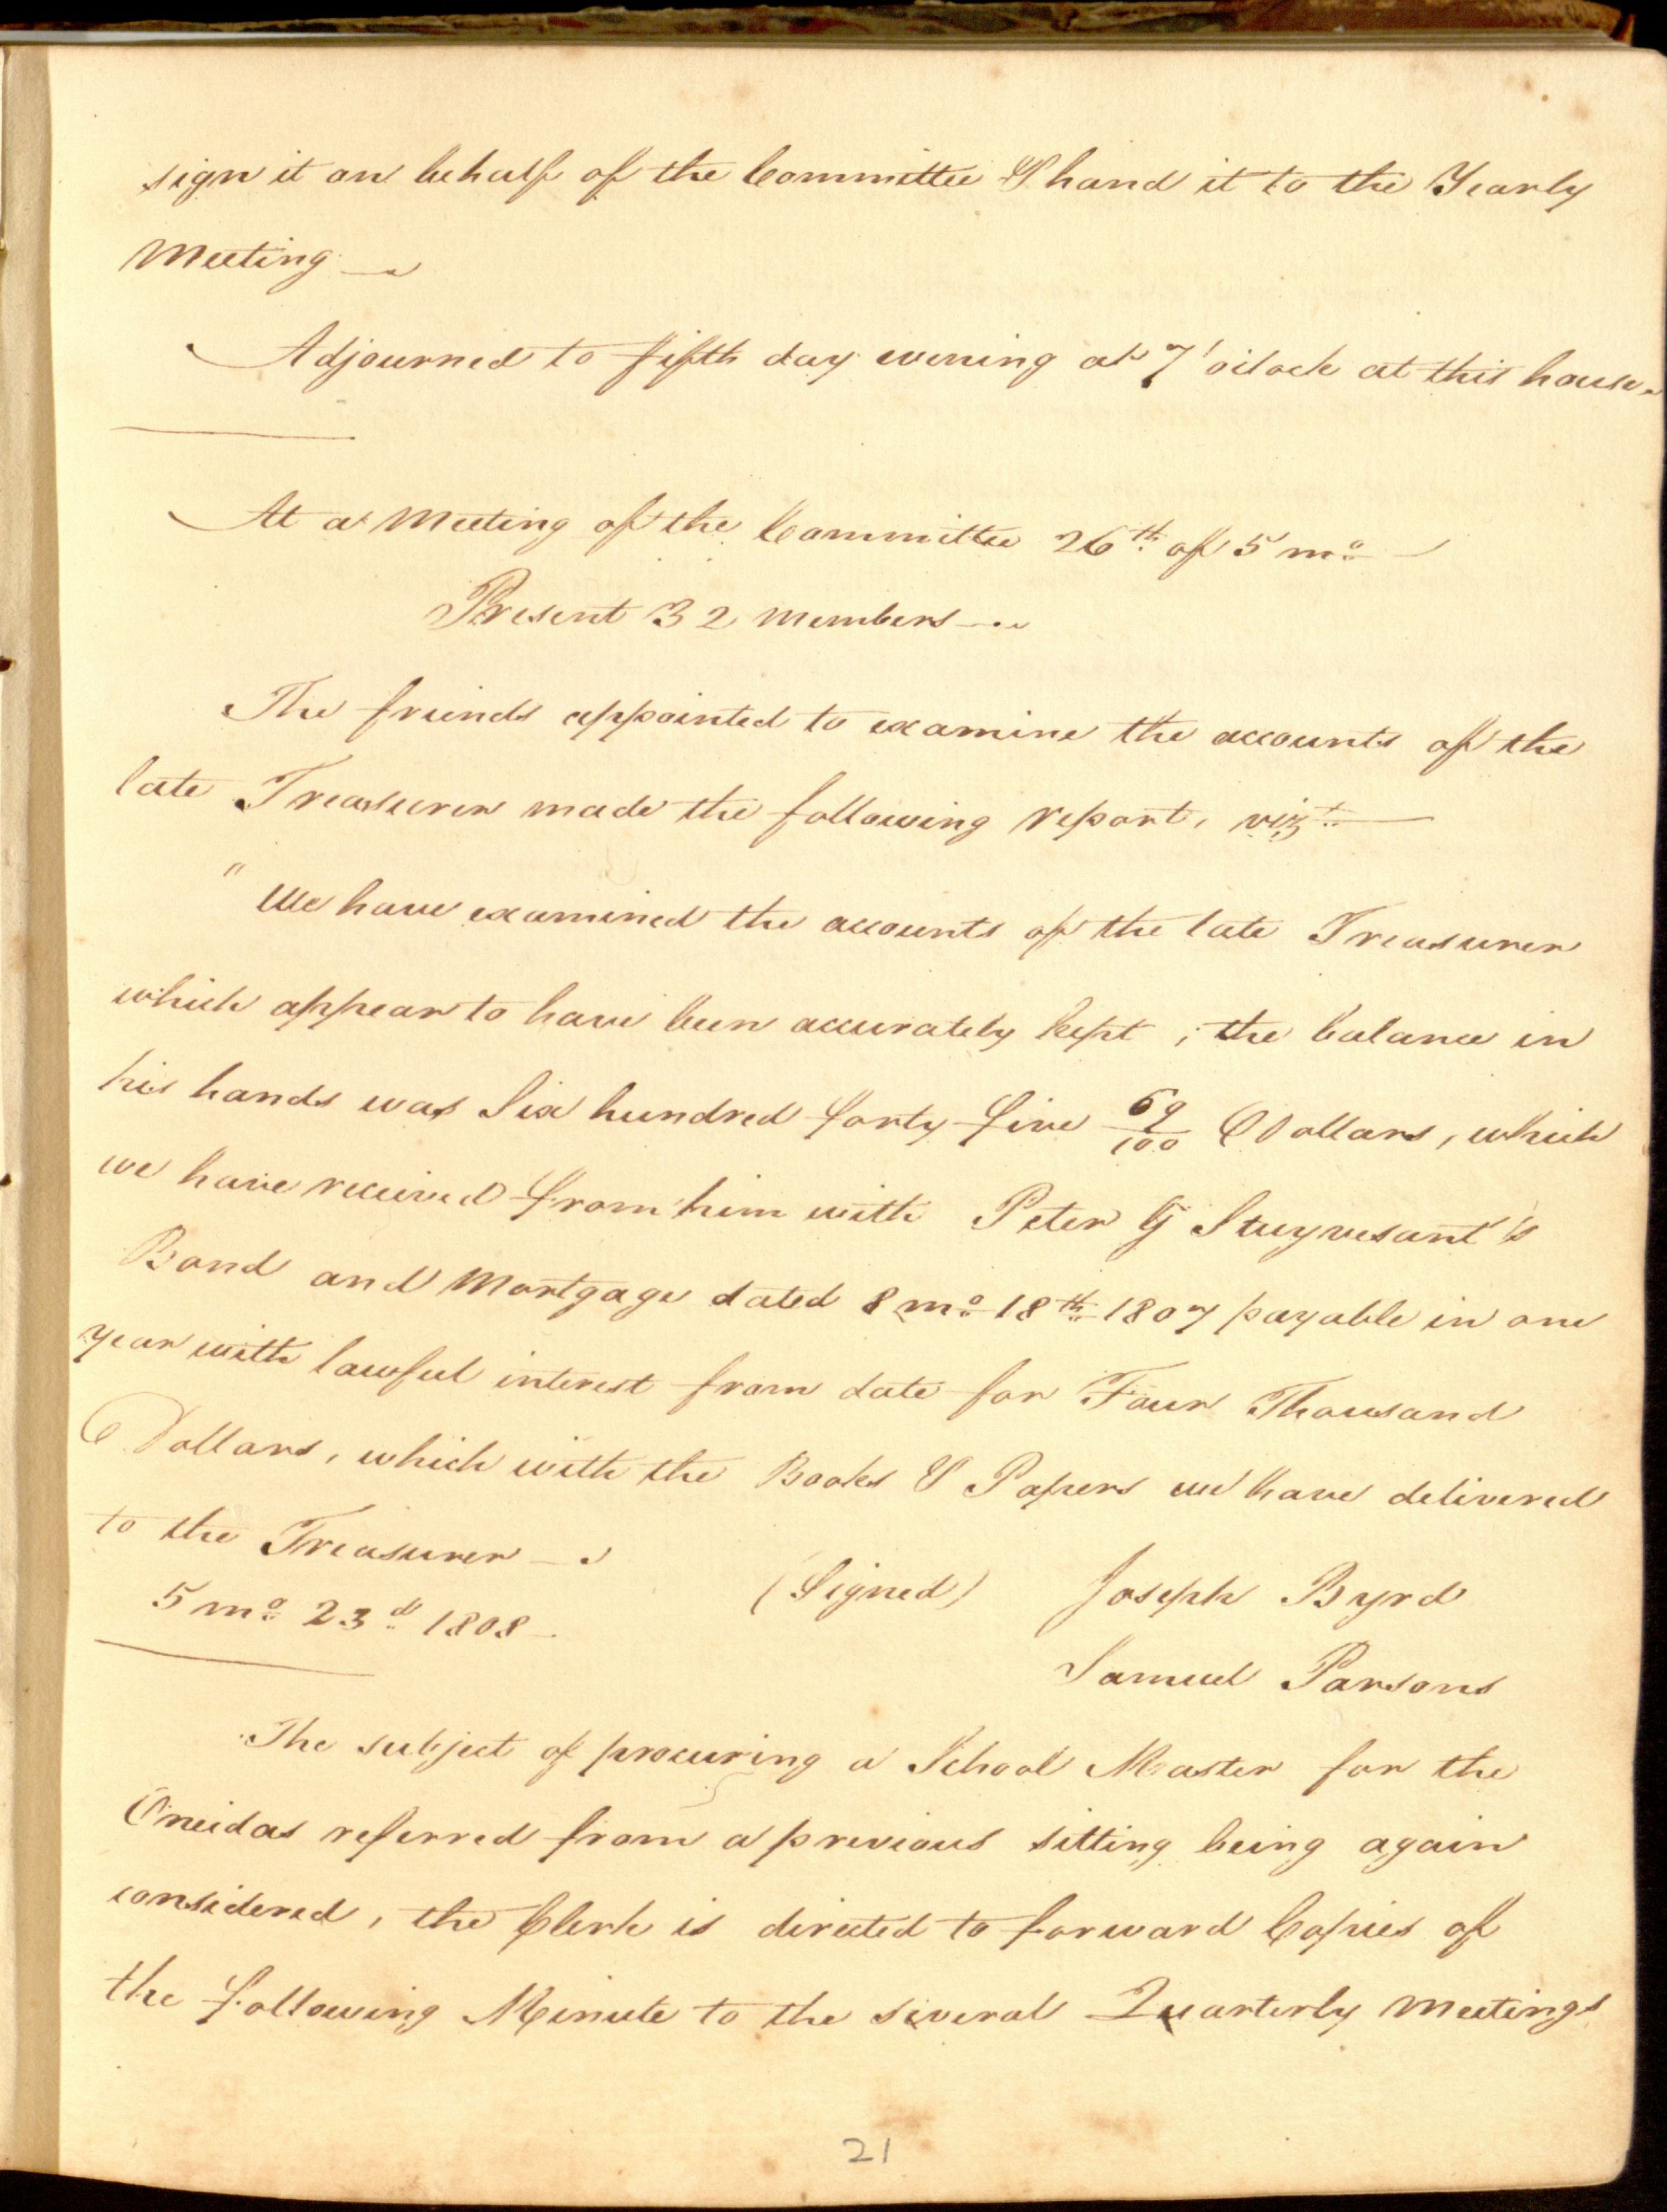 sign it on behalf of the Committee & hand it to the Yearly
Meeting
Adjourned to fifth day evening at 7 'oclock at this house
At a Meeting of the Committee 26th of 5 mo
Present 32 members
The friends appointed to examine the accounts of the
late Treasurer made the following report, vizt
" We have examined the accounts of the late Treasurer
which appear to have been accurately kept ; the balance in
his hands was Six hundred forty five 69/100 Dollars, which
we have received from him with Peter G Stuyvesant's
Bond and Mortgage dated 8 mo 18th 1807 payable in one
year with lawful interest from date for Four Thousand
Dollars, which with the Books & Papers we have delivered
to the Treasurer
(Signed) Joseph Byrd
5 mo 23d 1808
Samuel Parsons
The subject of procuring a School Master for the
Oneidas referred from a previous sitting being again
considered, the Clerk is directed to forward Copies of
the following Minute to the several Quarterly Meetings
21